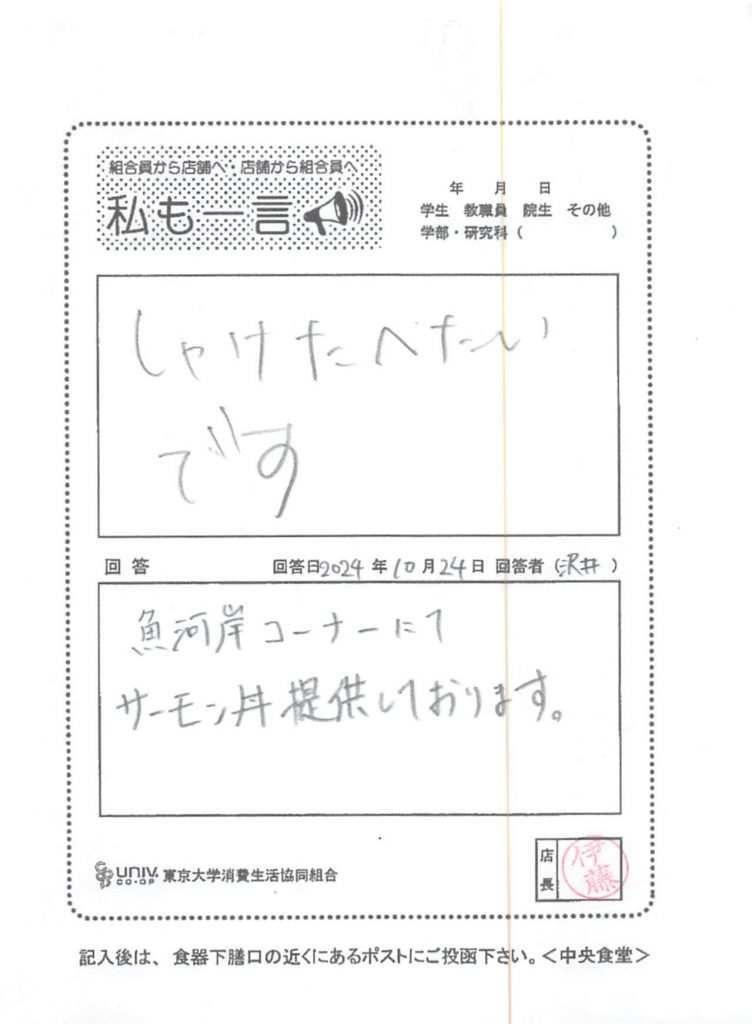 組合員から店舗へ・店舗から組合員へ
私も一言
年 月 日
学生 教職員 院生 その他
学部・研究科（ ）
しゃけたべたい
です
回答 回答日2024年10月24日 回答者（沢井）
魚河岸コーナーにて
サーモン丼提供しております。
UNIV. CO-OP 東京大学消費生活協同組合
店長 伊藤
記入後は、食器下膳口の近くにあるポストにご投函下さい。＜中央食堂＞